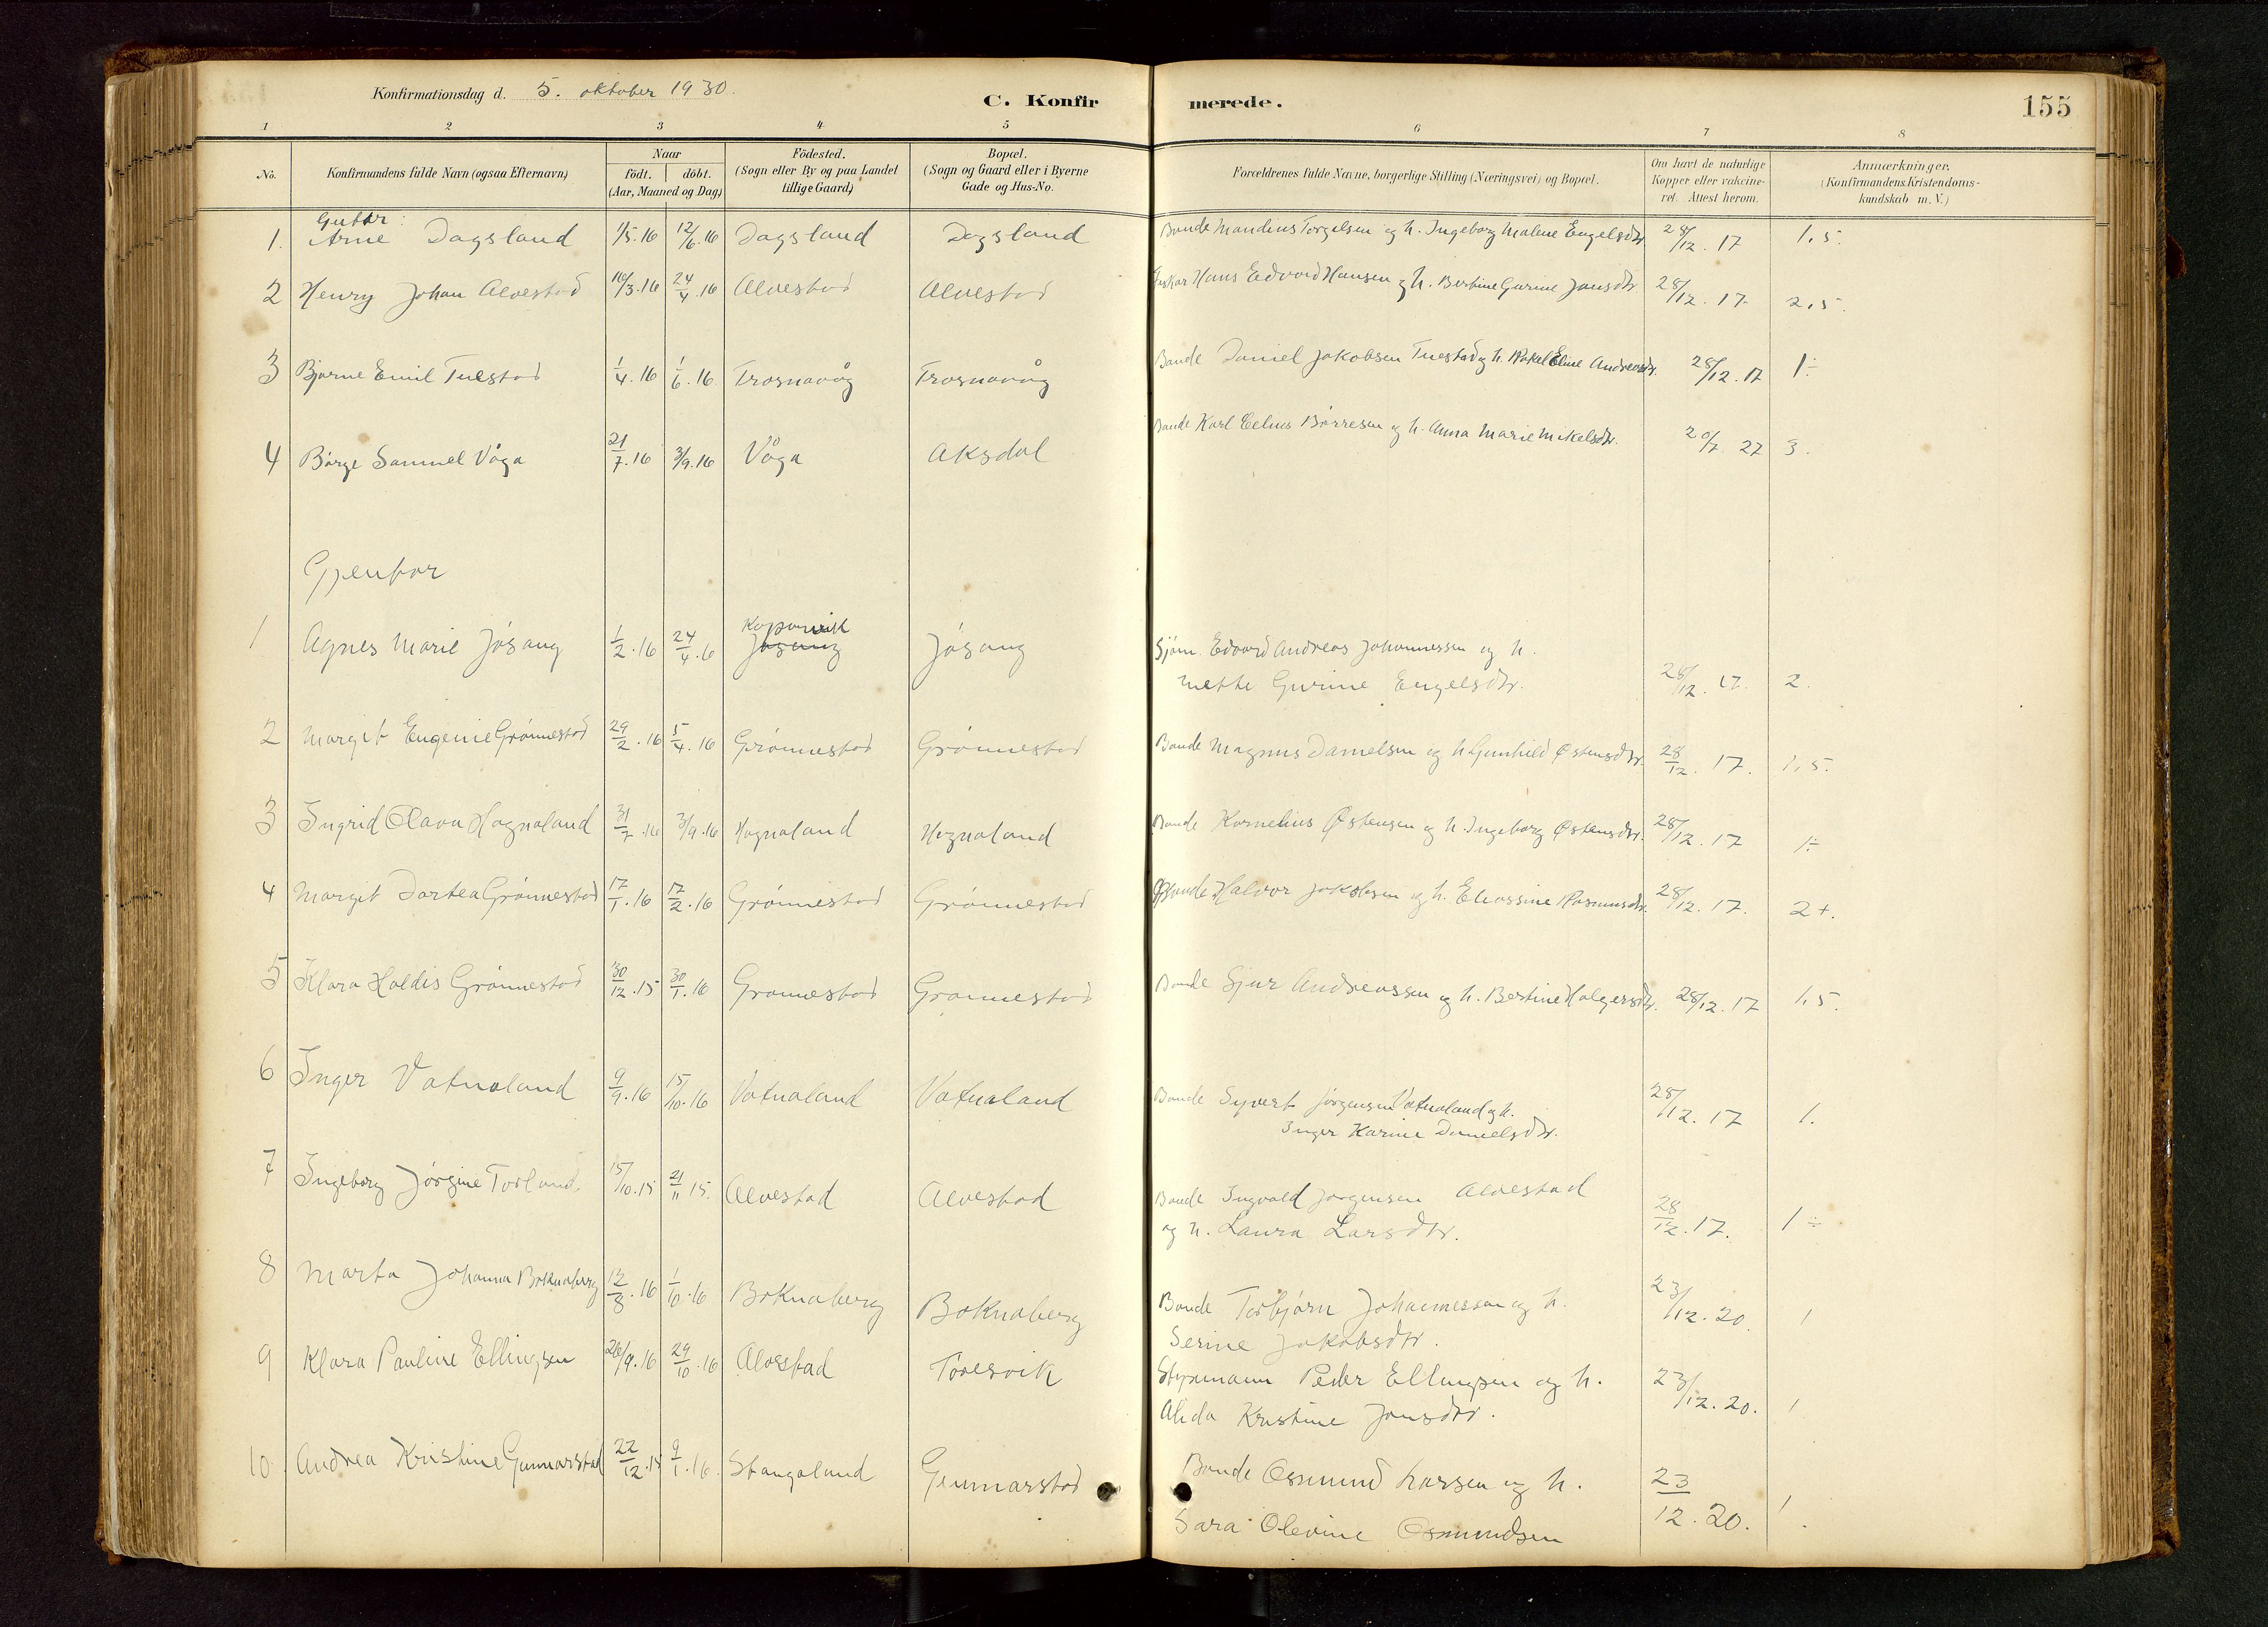 Konfirmationsdag d. 5. oktober 1930.
C. Konfirmerede.
155
1 2 3 4 5 6 7 8
No. Konfirmandens fulde Navn (ogsaa Efternavn) Naar födt. döbt. (Aar, Maaned og Dag) Födested. (Sogn eller By og paa Landet tillige Gaard) Bopæl. (Sogn og Gaard eller i Byerne Gade og Hus-No. Forældrenes fulde Navne, borgerlige Stilling (Næringsvei) og Bopæl. Om havt de naturlige Kopper eller vakcineret. Attest herom. Anmærkninger. (Konfirmandens Kristendomskundskab m. V.)
Gutter:
1. Arne Dagsland 1/5.16 12/6.16 Dagsland Dagsland Bonde Mandius Torgilsen og h. Ingeborg Malene Engelsdtr. 28/12.17 1,5.
2 Henry Johan Alvestad 16/3.16 24/4.16 Alvestad Alvestad Fiskar Hans Edvard Hansen og h. Bertine Gurine Jansdtr. 28/12.17 2,5.
3 Bjarne Emil Tuestad 1/4.16 1/6.16 Trosnavåg Trosnavåg Bonde Daniel Jakobsen Tuestad og h. Rakel Eline Andreasdtr. 28/12.17 1÷
4 Børge Samuel Våga 21/7.16 3/9.16 Våga Aksdal Bonde Karl Børresen og h. Anna Marie Mikelsdtr. 20/7 27 3.
Gjentor
1 Agnes Marie Jøsang 1/2.16 24/4.16 Kopervik Jøsang Jøsang Sjöm. Edvard Andreas Johannessen og h.
Mette Gurine Engelsdtr. 28/12.17. 2.
2 Margit Eugenie Grønnestad 29/2.16 5/4.16 Grønnestad Grønnestad Bonde Magnus Danielsen og h. Gunhild Østensdtr. 28/12.17. 1,5.
3 Ingrid Olava Hognaland 31/7.16 3/9.16 Hognaland Hognaland Bonde Kornelius Østensen og h. Ingeborg Østensdtr. 28/12.17 1÷
4 Margit Dortea Grønnestad 17/1.16 17/2.16 Grønnestad Grønnestad Bonde Halvor Jakobsen og h. Eliassine Rasmusdtr. 28/12.17. 2+.
5 Klara Haldis Grønnestad 30/12.15 30/1.16 Grønnestad Grønnestad Bonde Sjur Andreassen og h. Bertine Holgersdtr. 28/12.17 1,5.
6 Inger Vatnaland 9/9.16 15/10.16 Vatnaland Vatnaland Bonde Syvert Jørgensen Vatnaland og h.
Inger Karine Danielsdtr. 28/12.17 1.
7 Ingeborg Jørgine Torland. 15/10.15 21/11 15. Alvestad Alvestad Bonde Ingvald Jørgensen Alvestad
og h. Laura Larsdtr. 28/12.17. 1÷
8 Marta Johanna Boknaberg 12/8.16 1/10.16 Boknaberg Boknaberg Bonde Torbjørn Johannessen og h.
Serine Jakobsdtr. 23/12.20. 1
9 Klara Pauline Ellingsen 26/9.16 29/10.16 Alvestad Toresvik Styrmann Peder Ellingsen og h.
Alida Kristine Jonsdtr. 23/12.20. 1
10 Andrea Kristine Gunnarstad 22/12.15 9/1.16. Stangaland Gunnarstad Bonde Osmund Larsen og h.
Sara Olevine Osmundsen 23/12.20. 1.